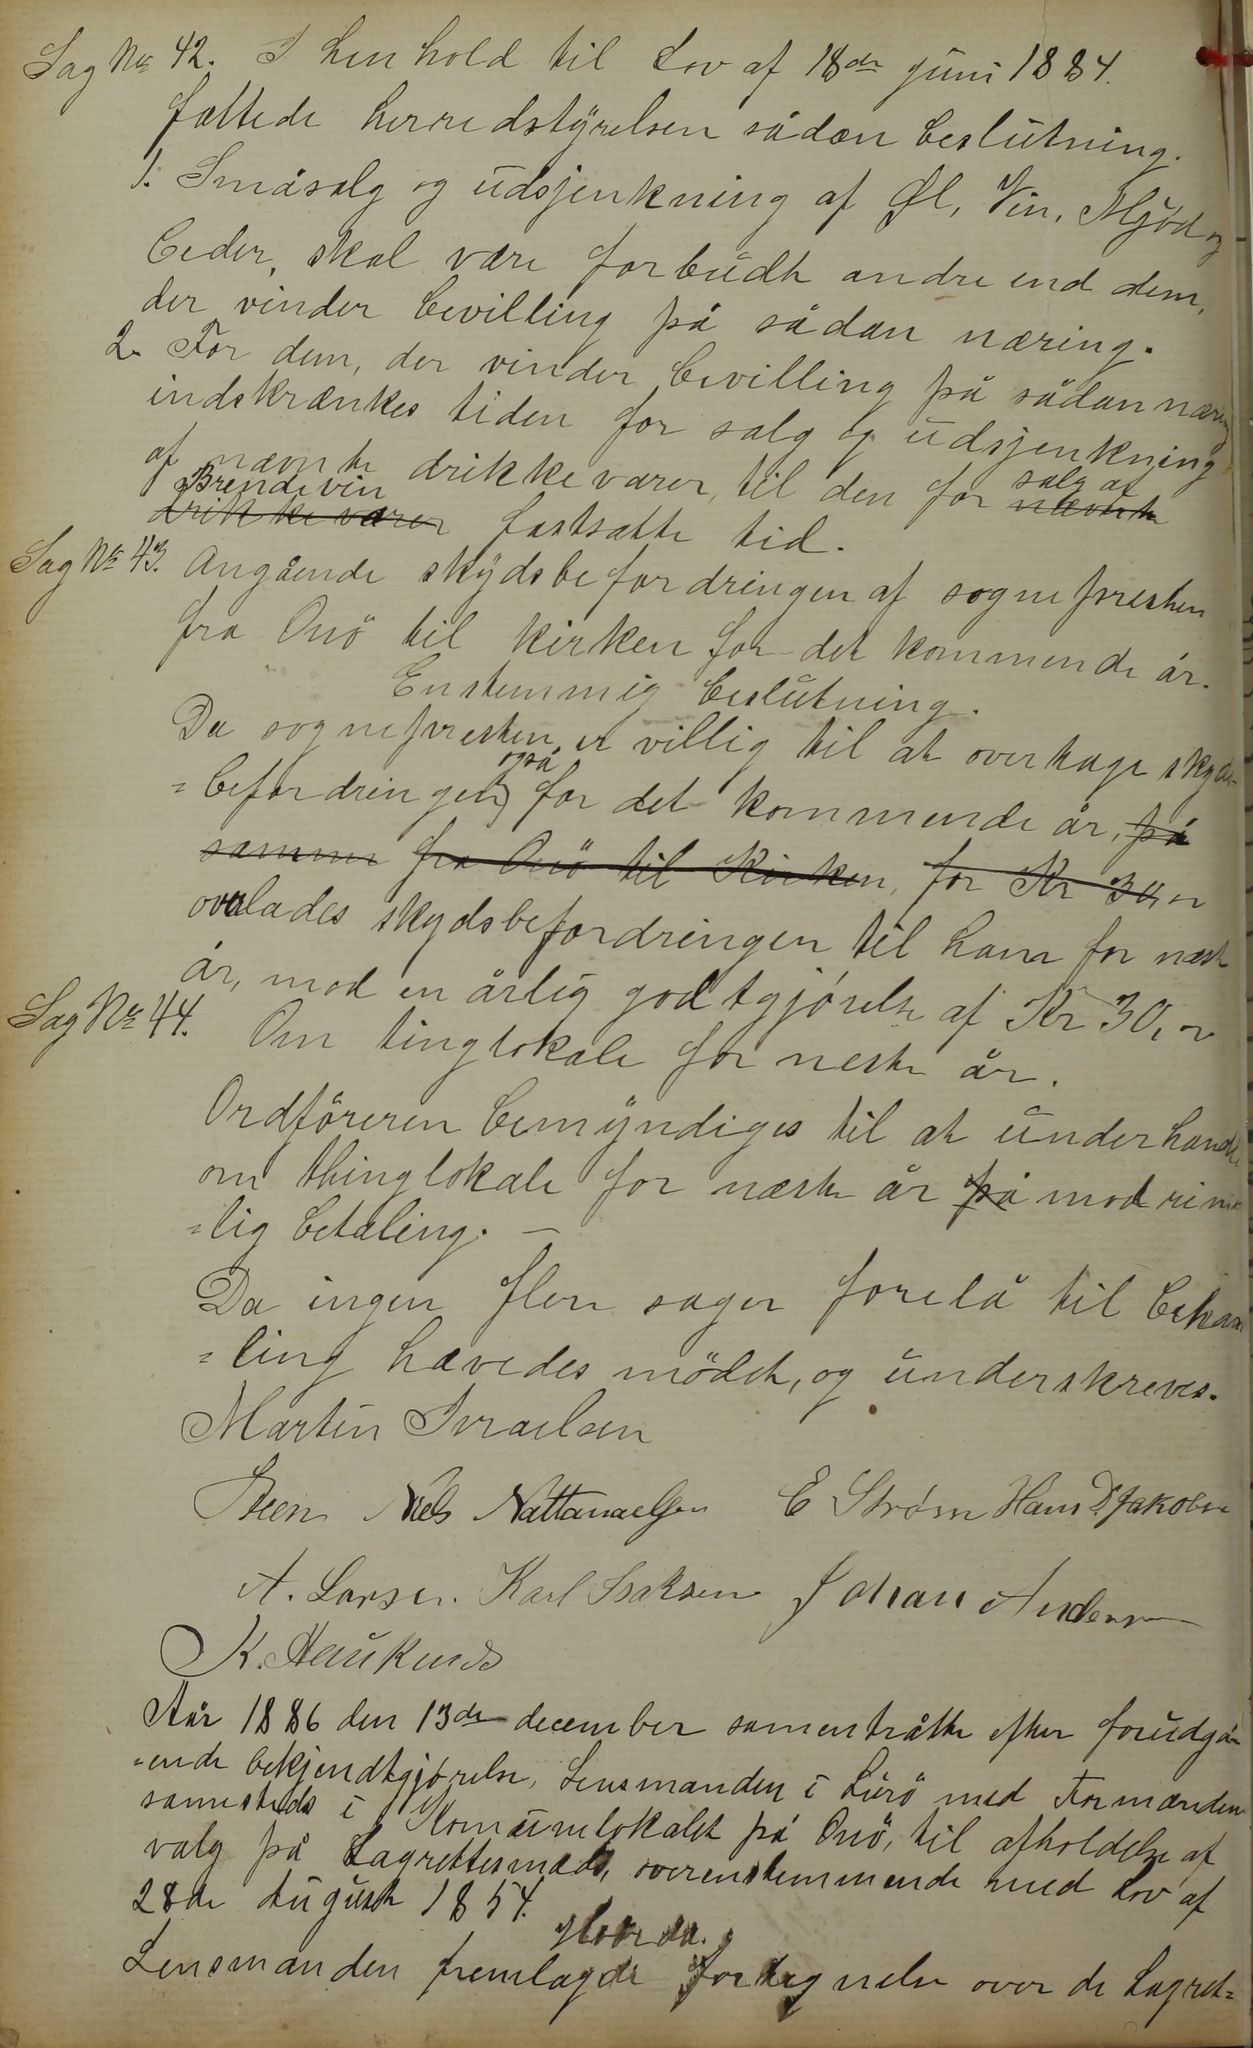 Sag No 42. I henhold til Lov af 18de juni 1884.
fattede herredstyrelsen sådan beslutning.
1. Småsalg og udsjenkning af Øl, Vin, Mjöd og
Ceder, skal være forbudt andre end dem,
der vinder bevilling på sådan næring.
2. For dem, der vinder bevilling på sådan næring
indskrænkes tiden for salg og udsjenkning
af nævnte drikkevarer, til den for salg af nævnte
Brendevin drikkevarer fastsatte tid.
Sag No 43. Angående skydsbefordringen af sognepresten
fra Onö til kirken for det kommende år.
Enstemmig beslutning.
Da sognepresten er villig til at overtage skyds-
=befordringen også for det kommende år, på
samme fra Onö til Kirken, for Kr 30,
overlades skydsbefordringen til ham for næste
år, mod en årlig godtgjörelse af Kr 30,
Sag No 44. Om tinglokale for neste år.
Ordföreren bemyndiges til at underhandle
om thinglokale for næste år på mod rime
=lig betaling. —
Da ingen flere sager forelå til behand
=ling hævedes mödet, og underskreves.
Martin Israelsen
Steen Niels Nattanaelsen E Strøm Hans D Jakobsen
A. Larsen. Karl Isaksen Johan Andersen
K. Haukunds
Aår 1886 den 13de december samentråtte efter forudgå
=ende bekjendtgjörelse, Lensmanden i Lurö med Formænden
samesteds i Komunelokalet på Onö, til afholdelse af
valg på Lagrettesmæd, overenstemmende med Lov af
28de august 1854.
Lensmanden fremlagde fortegnelse over de Lagret=